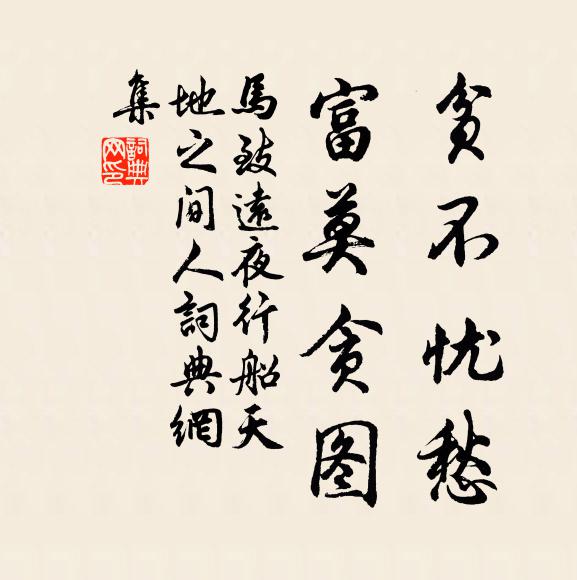 贫不忧愁
富莫贪图
馬致遠夜行船天
地之间人詞典網
集
詞典
网印